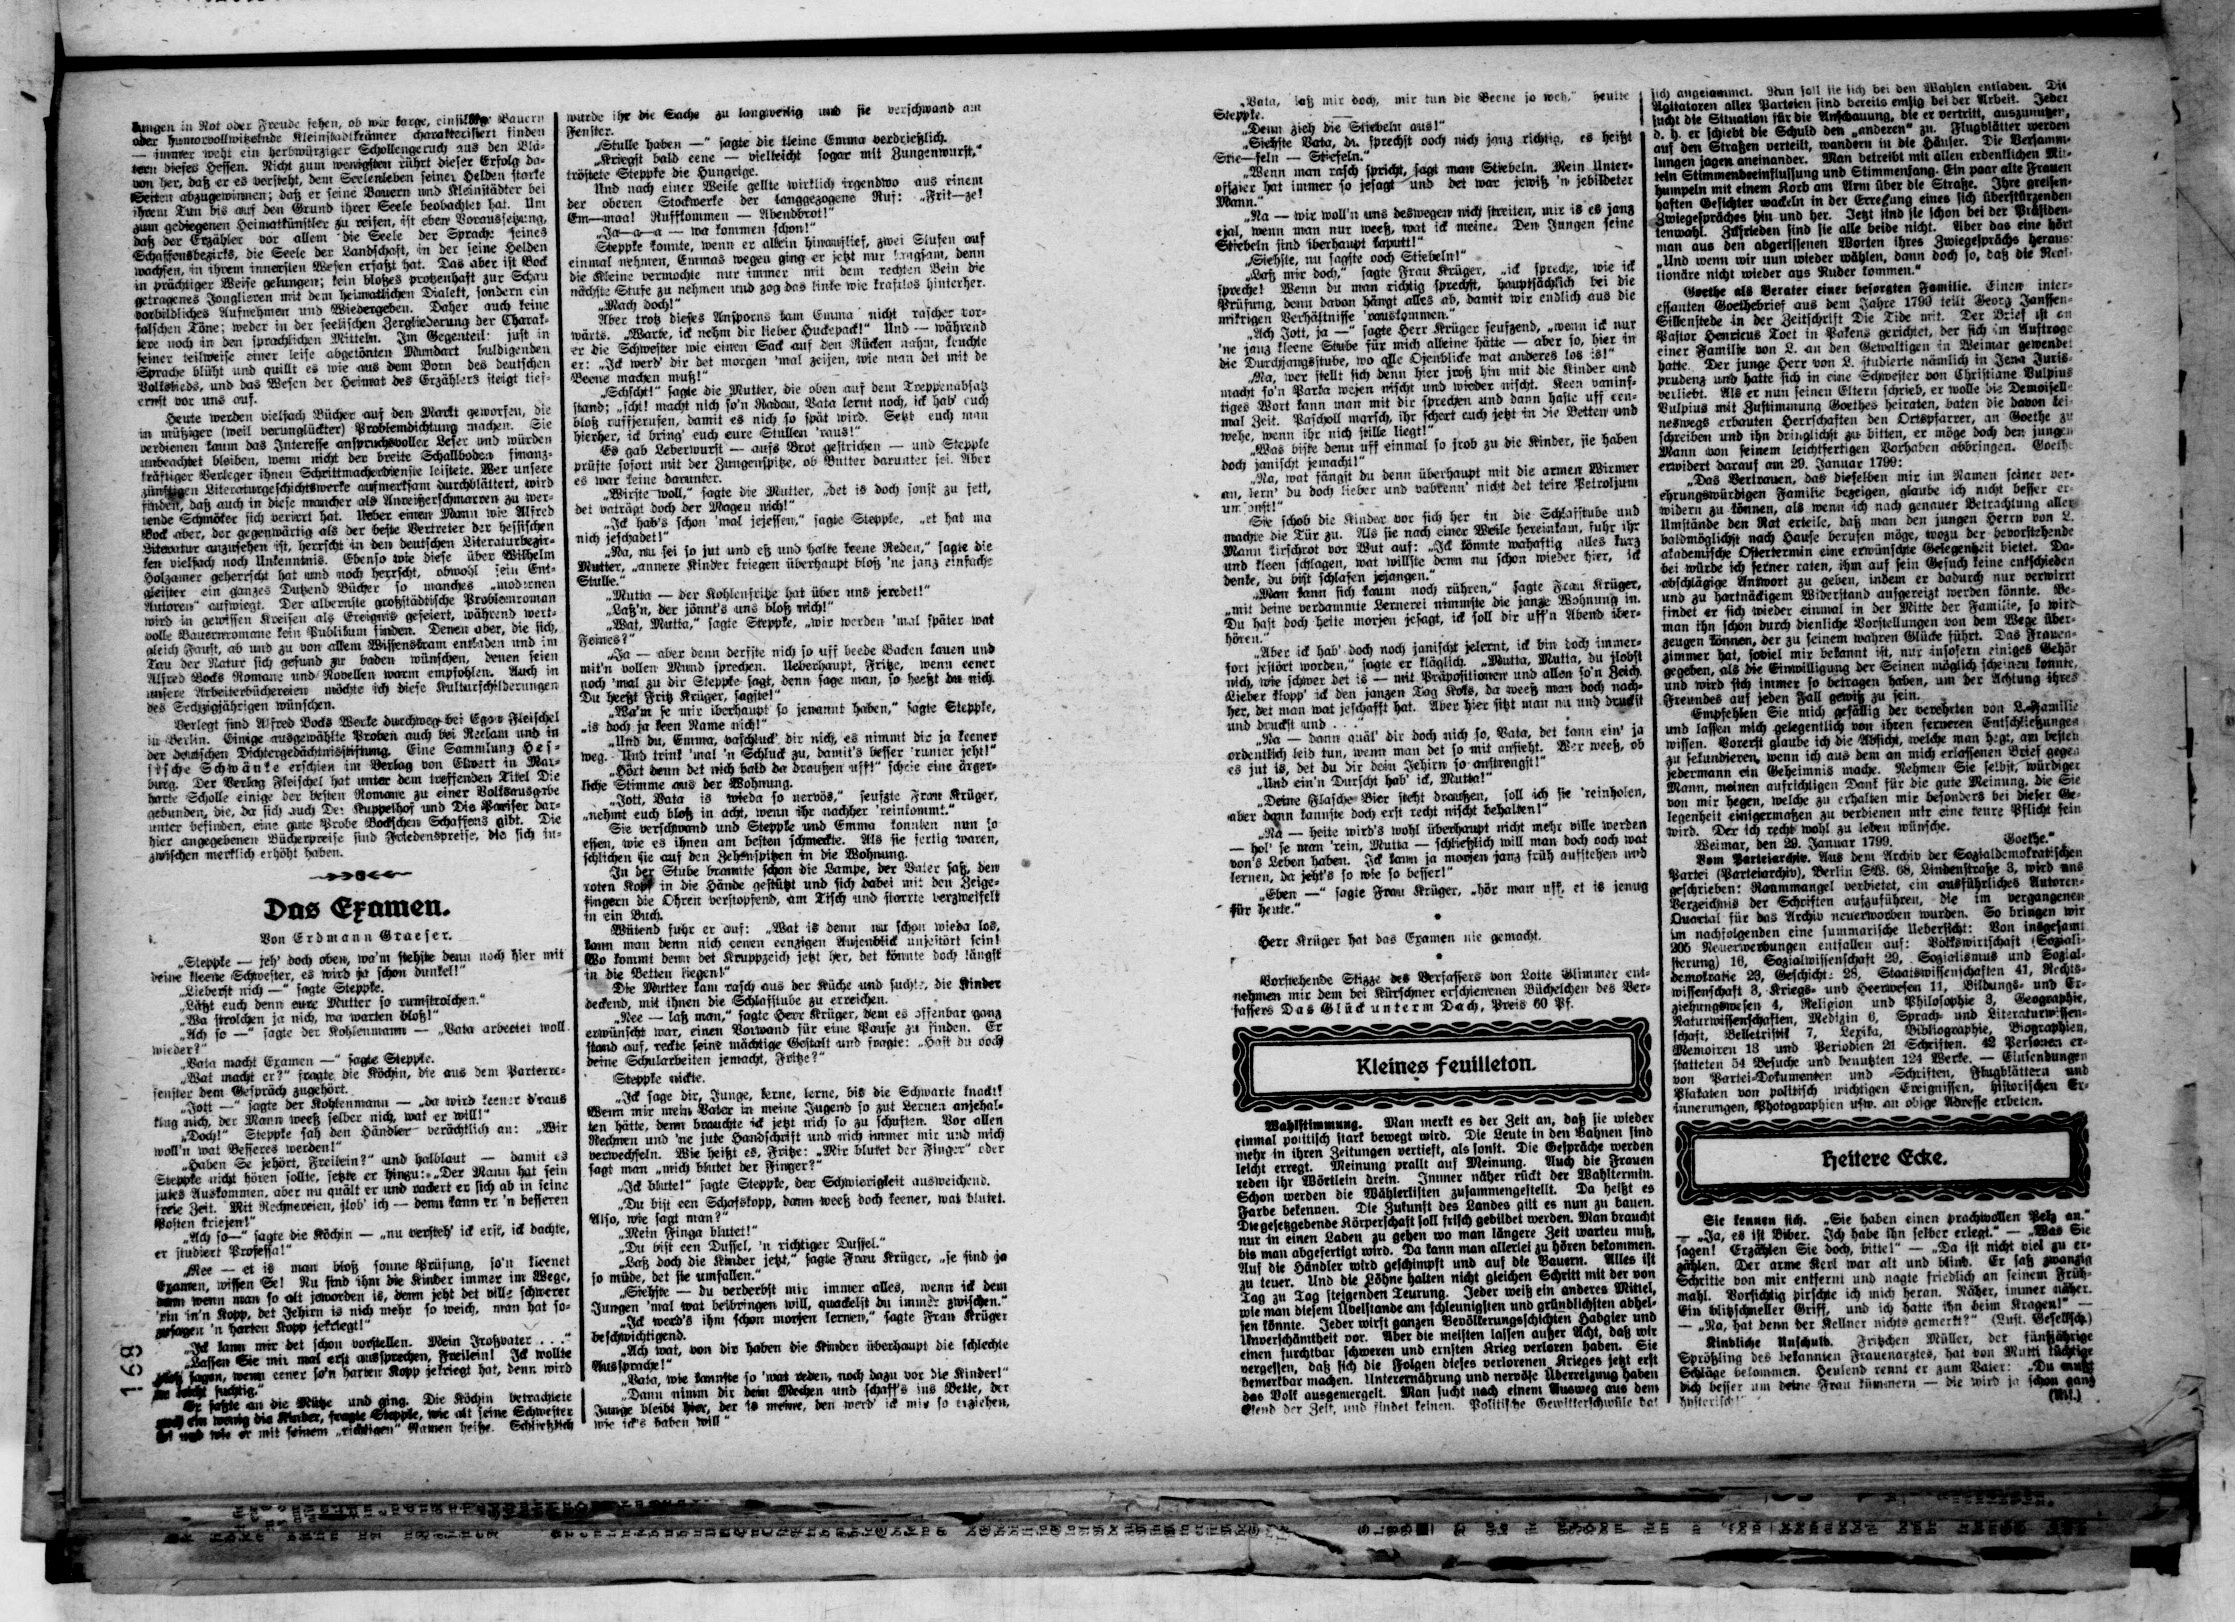 tungen in Not oder Freude sehen, ob wir karge, einsilbige Bauern
oder humorvollwitzelnde Kleinstadtkrämer charakterisiert finden
— immer weht ein herbwürziger Schollengeruch aus den Blä-
tern dieses Hessen. Nicht zum wenigsten rührt dieser Erfolg da-
von her, daß er es versteht, dem Seelenleben seiner Helden starke
Seiten abzugewinnen; daß er seine Bauern und Kleinstädter bei
ihrem Tun bis auf den Grund ihrer Seele beobachtet hat. Um
zum gediegenen Heimatkünstler zu reifen, ist eben Voraussetzung,
daß der Erzähler vor allem die Seele der Sprache seines
Schaffensbezirks, die Seele der Landschaft, in der seine Helden
wachsen, in ihrem innersten Wesen erfaßt hat. Das aber ist Bock
in prächtiger Weise gelungen; kein bloßes protzenhaft zur Schau
getragenes Jonglieren mit dem heimatlichen Dialekt, sondern ein
vorbildliches Aufnehmen und Wiedergeben. Daher auch keine
falschen Töne; weder in der seelischen Zergliederung der Charak-
tere noch in den sprachlichen Mitteln. Im Gegenteil: just in
seiner teilweise einer leise abgetönten Mundart huldigenden
Sprache blüht und quillt es wie aus dem Born des deutschen
Volkslieds, und das Wesen der Heimat des Erzählers steigt tief-
ernst vor uns auf.
Heute werden vielfach Bücher auf den Markt geworfen, die
in müßiger (weil verunglückter) Problemdichtung machen. Sie
verdienen kaum das Interesse anspruchsvoller Leser und würden
unbeachtet bleiben, wenn nicht der breite Schallboden finanz-
kräftiger Verleger ihnen Schrittmacherdienste leistete. Wer unsere
zünftigen Literaturgeschichtswerke aufmerksam durchblättert, wird
finden, daß auch in diese mancher als Anreißerschmarren zu wer-
tende Schmöker sich verirrt hat. Ueber einen Mann wie Alfred
Bock aber, der gegenwärtig als der beste Vertreter der hessischen
Literatur anzusehen ist, herrscht in den deutschen Literaturbezir-
ken vielfach noch Unkenntnis. Ebenso wie diese über Wilhelm
Holzamer geherrscht hat und noch herrscht, obwohl sein Ent-
gleister ein ganzes Dutzend Bücher so manches „modernen
Autoren“ aufwiegt. Der albernste großstädtische Problemroman
wird in gewissen Kreisen als Ereignis gefeiert, während wert-
volle Bauernromane kein Publikum finden. Denen aber, die sich,
gleich Faust, ab und zu von allem Wissenskram entladen und im
Tau der Natur sich gesund zu baden wünschen, denen seien
Alfred Bocks Romane und Novellen warm empfohlen. Auch in
unsere Arbeiterbüchereien möchte ich diese Kulturschilderungen
des Sechzigjährigen wünschen.
Verlegt sind Alfred Bocks Werke durchweg bei Egon Fleischel
in Berlin. Einige ausgewählte Proben auch bei Reclam und in
der deutschen Dichtergedächtnisstiftung. Eine Sammlung Hes-
sische Schwänke erschien im Verlag von Elwert in Mar-
burg. Der Verlag Fleischel hat unter dem treffenden Titel Die
harte Scholle einige der besten Romane zu einer Volksausgabe
gebunden, die, da sich auch Der Kuppelhof und Die Pariser dar-
unter befinden, eine gute Probe Bockschen Schaffens gibt. Die
hier angegebenen Bücherpreise sind Friedenspreise, die sich in-
zwischen merklich erhöht haben.
Das Examen.
Von Erdmann Graeser.
„Steppke — jeh' doch oben, wa'm stehste denn noch hier mit
deine kleene Schwester, es wird ja schon dunkel!“
„Lieberst nich —“ sagte Steppke.
„Läßt euch denn eure Mutter so rumstrolchen.“
„Wa strolchen ja nich, wa warten bloß!“
„Ach so —“ sagte der Kohlenmann — „Vata arbeetet woll
wieder?“
„Vata macht Examen —“ sagte Steppke.
„Wat macht er?“ fragte die Köchin, die aus dem Parterre-
fenster dem Gespräch zugehört.
„Jott —“ sagte der Kohlenmann — „da wird keener d'raus
klug nich, der Mann weeß selber nich, wat er will!“
„Doch!“ Steppke sah den Händler verächtlich an: „Wir
woll'n wat Besseres werden!“
„Haben Se jehört, Freilein?“ und halblaut — damit es
Steppke nicht hören sollte, setzte er hinzu: „Der Mann hat sein
jutes Auskommen, aber nu quält er und rackert er sich ab in seine
freie Zeit. Mit Rechnereien, jlob' ich — denn kann er 'n besseren
Posten kriejen!“
„Ach so—“ sagte die Köchin — „nu versteh' ick erst, ick dachte,
er studiert Professa!“
„Nee — et is man bloß sonne Prüfung, so'n kleenet
Examen, wissen Se! Nu sind ihm die Kinder immer im Wege,
denn wenn man so alt jeworden is, denn jeht det ville schwerer
'rin in'n Kopp, det Jehirn is nich mehr so weich, man hat so-
zusagen 'n harten Kopp jekriegt!“
„Ick kann mir det schon vorstellen. Mein Jroßvater . . .“
„Lassen Sie mir mal erst aussprechen, Freilein! Ick wollte
bloß sagen, wenn eener so'n harten Kopp jekriegt hat, denn wird
er leicht fuchtig.“
Er faßte an die Mütze und ging. Die Köchin betrachtete
noch ein wenig die Kinder, fragte Steppke, wie alt seine Schwester
sei und wie er mit seinem „richtigen“ Namen heiße. Schließlich
168
wurde ihr die Sache zu langweilig und sie verschwand am
Fenster.
„Stulle haben —“ sagte die kleine Emma verdrießlich.
„Kriegst bald eene — vielleicht sogar mit Zungenwurst,“
tröstete Steppke die Hungrige.
Und nach einer Weile gellte wirklich irgendwo aus einem
der oberen Stockwerke der langgezogene Ruf: „Frit—ze!
Em—maa! Rufftommen — Abendbrot!“
„Ja—a—a — wa kommen schon!“
Steppke konnte, wenn er allein hinauflief, zwei Stufen auf
einmal nehmen, Emmas wegen ging er jetzt nur langsam, denn
die Kleine vermochte nur immer mit dem rechten Bein die
nächste Stufe zu nehmen und zog das linke wie kraftlos hinterher.
„Mach doch!“
Aber trotz dieses Ansporns kam Emma nicht rascher vor-
wärts. „Warte, ick nehm dir lieber Huckepack!“ Und — während
er die Schwester wie einen Sack auf den Rücken nahm, keuchte
er: „Ick werd' dir det morgen 'mal zeijen, wie man det mit de
Beene machen muß!“
„Schscht!“ sagte die Mutter, die oben auf dem Treppenabsatz
stand; „scht! macht nich so'n Radau, Vata lernt noch, ick hab' euch
bloß ruffjerufen, damit es nich so spät wird. Setzt euch man
hierher, ick bring' euch eure Stullen 'raus!“
Es gab Leberwurst — aufs Brot gestrichen — und Steppke
prüfte sofort mit der Zungenspitze, ob Butter darunter sei. Aber
es war keine darunter.
„Wirste woll,“ sagte die Mutter, „det is doch sonst zu fett,
det vaträgt doch der Magen nich!“
„Ick hab's schon 'mal jejessen,“ sagte Steppke, „et hat ma
nich jeschadet!“
„Na, nu sei so jut und eß und halte keene Reden,“ sagte die
Mutter, „annere Kinder kriegen überhaupt bloß 'ne janz einfache
Stulle.“
„Mutta — der Kohlenfritze hat über uns jeredet!“
„Laß'n, der jönnt's uns bloß nich!“
„Wat, Mutta,“ sagte Steppke, „wir werden 'mal später wat
Feines?“
„Ja — aber denn derfste nich so uff beede Backen kauen und
mit'n vollen Mund sprechen. Ueberhaupt, Fritze, wenn eener
noch 'mal zu dir Steppke sagt, denn sage man, so heeßt du nich.
Du heeßt Fritz Krüger, sagste!“
„Wa'm se mir iberhaupt so jenannt haben,“ sagte Steppke,
„is doch ja keen Name nich!“
„Und du, Emma, vaschluck' dir nich, es nimmt dir ja keener
weg. Und trink' 'mal 'n Schluck zu, damit's besser 'runter jeht!“
„Hört denn det nich bald da draußen uff!“ schrie eine ärger-
liche Stimme aus der Wohnung.
„Jott, Vata is wieda so nervös,“ seufzte Frau Krüger,
„nehmt euch bloß in acht, wenn ihr nachher 'reinkommt.“
Sie verschwand und Steppke und Emma konnten nun so
essen, wie es ihnen am besten schmeckte. Als sie fertig waren,
schlichen sie auf den Zehenspitzen in die Wohnung.
In der Stube brannte schon die Lampe, der Vater saß, den
roten Kopf in die Hände gestützt und sich dabei mit den Zeige-
fingern die Ohren verstopfend, am Tisch und starrte verzweifelt
in ein Buch.
Wütend fuhr er auf: „Wat is denn nu schon wieda los,
kann man denn nich eenen eenzigen Aujenblick unjestört sein!
Wo kommt denn det Kruppzeich jetzt her, det könnte doch längst
in die Betten liegen!“
Die Mutter kam rasch aus der Küche und suchte, die Kinder
deckend, mit ihnen die Schlafstube zu erreichen.
„Nee — laß man,“ sagte Herr Krüger, dem es offenbar ganz
erwünscht war, einen Vorwand für eine Pause zu finden. Er
stand auf, reckte seine mächtige Gestalt und fragte: „Hast du doch
deine Schularbeiten jemacht, Fritze?“
Steppke nickte.
„Ick sage dir, Junge, lerne, lerne, bis die Schwarte knackt!
Wenn mir mein Vater in meine Jugend so zut Lernen anjehal-
ten hätte, denn brauchte ick jetzt nich so zu schuften. Vor allen
Rechnen und 'ne jute Handschrift und nich immer mir und mich
verwechseln. Wie heißt es, Fritze: „Mir blutet der Finger“ oder
sagt man „mich blutet der Finger?“
„Ick blute!“ sagte Steppke, der Schwierigkeit ausweichend.
„Du bist een Schafskopp, dann weeß doch keener, wat blutet.
Also, wie sagt man?“
„Mein Finga blutet!“
„Du bist een Dussel, 'n richtiger Dussel.“
„Laß doch die Kinder jetzt,“ sagte Frau Krüger, „se sind ja
so müde, det sie umfallen.“
„Siehste — du verderbst mir immer alles, wenn ick dem
Jungen 'mal wat beibringen will, quackelst du immer zwischen.“
„Ick werd's ihm schon morjen lernen,“ sagte Frau Krüger
beschwichtigend.
„Ach wat, von dir haben die Kinder überhaupt die schlechte
Aussprache!“
„Vata, wie kannste so 'wat reden, noch dazu vor die Kinder!“
„Dann nimm dir dein Mechen und schaff's ins Bette, der
Junge bleibt hier, der is meine, den werd' ick mir so erziehen,
wie ick's haben will“
„Vata, laß mir doch, mir tun die Beene so weh,“ heulte
Steppke.
„Denn zieh die Stiebeln aus!“
„Siehste Vata, du sprechst ooch nich janz richtig, es heißt
Stie—feln — Stiefeln.“
„Wenn man rasch spricht, sagt man Stiebeln. Mein Unter-
offizier hat immer so jesagt und det war jewiß 'n jebildeter
Mann.“
„Na — wir woll'n uns deswegen nich streiten, mir is es janz
ejal, wenn man nur weeß, wat ick meine. Den Jungen seine
Stiebeln sind iberhaupt kaputt!“
„Siehste, nu sagste ooch Stiebeln!“
„Laß mir doch,“ sagte Frau Krüger, „ick spreche, wie ick
spreche! Wenn du man richtig sprechst, hauptsächlich bei die
Prüfung, denn davon hängt alles ab, damit wir endlich aus die
mikrigen Verhältnisse 'rauskommen.“
„Ach Jott, ja —“ sagte Herr Krüger seufzend, „wenn ick nur
'ne janz kleene Stube für mich alleine hätte — aber so, hier in
die Durchjangsstube, wo alle Ojenblicke wat anderes los is!“
„Na, wer stellt sich denn hier jroß hin mit die Kinder und
macht so'n Parka wejen nischt und wieder nischt. Keen vaninf-
tiges Wort kann man mit dir sprechen und dann haste uff een-
mal Zeit. Pascholl marsch, ihr schert euch jetzt in die Betten und
wehe, wenn ihr nich stille liegt!“
„Was biste denn uff einmal so jrob zu die Kinder, sie haben
doch janischt jemacht!“
„Na, wat fängst du denn überhaupt mit die armen Wirmer
an, lern' du doch lieber und vabrenn' nicht det teire Petroljum
umsonst!“
Sie schob die Kinder vor sich her in die Schlafstube und
machte die Tür zu. Als sie nach einer Weile hereinkam, fuhr ihr
Mann kirschrot vor Wut auf: „Ick könnte wahaftig alles kurz
und kleen schlagen, wat willste denn nu schon wieder hier, ick
denke, du bist schlafen jejangen.“
„Man kann sich kaum noch rühren,“ sagte Frau Krüger,
„mit deine verdammte Lernerei nimmste die janze Wohnung in.
Du hast doch heite morjen jesagt, ick soll dir uff'n Abend iber-
hören.“
„Aber ick hab' doch noch janischt jelernt, ick bin doch immer-
fort jestört worden,“ sagte er kläglich. „Mutta, Mutta, du jlobst
nich, wie schwer det is — mit Präpositionen und allen so'n Zeich.
Lieber klopp' ick den janzen Tag Koks, da weeß man doch nach-
her, det man wat jeschafft hat. Aber hier sitzt man nu und druckst
und druckst und . . .“
„Na — dann quäl' dir doch nich so, Vata, det kann ein' ja
ordentlich leid tun, wenn man det so mit ansieht. Wer weeß, ob
es jut is, det du dir dein Jehirn so anstrengst!“
„Und ein'n Durscht hab' ick, Mutta!“
„Deine Flasche Bier steht draußen, soll ich sie 'reinholen,
aber dann kannste doch erst recht nischt behalten!“
„Na — heite wird's wohl überhaupt nicht mehr ville werden
— hol' se man 'rein, Mutta — schließlich will man doch ooch wat
von's Leben haben. Ick kann ja morjen janz früh aufstehen und
lernen, da jeht's so wie so besser!“
„Eben —“ sagte Frau Krüger, „hör man uff, et is jenug
für heute.“
*
Herr Krüger hat das Examen nie gemacht.
*
Vorstehende Skizze des Verfassers von Lotte Glimmer ent-
nehmen wir dem bei Kürschner erschienenen Büchelchen des Ver-
fassers Das Glück unterm Dach, Preis 60 Pf.
Kleines Feuilleton.
Wahlstimmung. Man merkt es der Zeit an, daß sie wieder
einmal politisch stark bewegt wird. Die Leute in den Bahnen sind
mehr in ihren Zeitungen vertieft, als sonst. Die Gespräche werden
leicht erregt. Meinung prallt auf Meinung. Auch die Frauen
reden ihr Wörtlein drein. Immer näher rückt der Wahltermin.
Schon werden die Wählerlisten zusammengestellt. Da heißt es
Farbe bekennen. Die Zukunft des Landes gilt es nun zu bauen.
Die gesetzgebende Körperschaft soll frisch gebildet werden. Man braucht
nur in einen Laden zu gehen wo man längere Zeit warten muß,
bis man abgefertigt wird. Da kann man allerlei zu hören bekommen.
Auf die Händler wird geschimpft und auf die Bauern. Alles ist
zu teuer. Und die Löhne halten nicht gleichen Schritt mit der von
Tag zu Tag steigenden Teurung. Jeder weiß ein anderes Mittel,
wie man diesem Übelstande am schleunigsten und gründlichsten abhel-
fen könnte. Jeder wirft ganzen Bevölkerungsschichten Habgier und
Unverschämtheit vor. Aber die meisten lassen außer Acht, daß wir
einen furchtbar schweren und ernsten Krieg verloren haben. Sie
vergessen, daß sich die Folgen dieses verlorenen Krieges jetzt erst
bemerkbar machen. Unterernährung und nervöse Überreizung haben
das Volk ausgemergelt. Man sucht nach einem Ausweg aus dem
Elend der Zeit, und findet keinen. Politische Gewitterschwüle hat
sich angesammet. Nun soll sie sich bei den Wahlen entladen. Die
Agitatoren aller Parteien sind bereits emsig bei der Arbeit. Jeder
sucht die Situation für die Anschauung, die er vertritt, auszunutzen,
d. h. er schiebt die Schuld den „anderen“ zu. Flugblätter werden
auf den Straßen verteilt, wandern in die Häuser. Die Versamm-
lungen jagen aneinander. Man betreibt mit allen erdenklichen Mit-
teln Stimmenbeeinflussung und Stimmenfang. Ein paar alte Frauen
humpeln mit einem Korb am Arm über die Straße. Ihre greisen-
haften Gesichter wackeln in der Erregung eines sich überstürzenden
Zwiegespräches hin und her. Jetzt sind sie schon bei der Präsiden-
tenwahl. Zufrieden sind sie alle beide nicht. Aber das eine hört
man aus den abgerissenen Worten ihres Zwiegesprächs heraus:
„Und wenn wir nun wieder wählen, dann doch so, daß die Reak-
tionäre nicht wieder ans Ruder kommen.“
Goethe als Berater einer besorgten Familie. Einen inter-
essanten Goethebrief aus dem Jahre 1799 teilt Georg Janssen-
Sillenstede in der Zeitschrift Die Tide mit. Der Brief ist an
Pastor Henricus Toet in Pakens gerichtet, der sich im Auftrage
einer Familie von L. an den Gewaltigen in Weimar gewendet
hatte. Der junge Herr von L. studierte nämlich in Jena Juris-
prudenz und hatte sich in eine Schwester von Christiane Vulpius
verliebt. Als er nun seinen Eltern schrieb, er wolle die Demoiselle
Vulpius mit Zustimmung Goethes heiraten, baten die davon kei-
neswegs erbauten Herrschaften den Ortspfarrer, an Goethe zu
schreiben und ihn dringlichst zu bitten, er möge doch den jungen
Mann von seinem leichtfertigen Vorhaben abbringen. Goethe
erwidert darauf am 29. Januar 1799:
„Das Vertrauen, das dieselben mir im Namen seiner ver-
ehrungswürdigen Familie bezeigen, glaube ich nicht besser er-
widern zu können, als wenn ich nach genauer Betrachtung aller
Umstände den Rat erteile, daß man den jungen Herrn von L.
baldmöglichst nach Hause berufen möge, wozu der bevorstehende
akademische Ostertermin eine erwünschte Gelegenheit bietet. Da-
bei würde ich ferner raten, ihm auf sein Gesuch keine entschieden
abschlägige Antwort zu geben, indem er dadurch nur verwirrt
und zu hartnäckigem Widerstand aufgereizt werden könnte. Be-
findet er sich wieder einmal in der Mitte der Familie, so wird
man ihn schon durch dienliche Vorstellungen von dem Wege über-
zeugen können, der zu seinem wahren Glücke führt. Das Frauen-
zimmer hat, soviel mir bekannt ist, nur insofern einiges Gehör
gegeben, als die Einwilligung der Seinen möglich scheinen konnte,
und wird sich immer so betragen haben, um der Achtung ihres
Freundes auf jeden Fall gewiß zu sein.
Empfehlen Sie mich gefällig der verehrten von L.-Familie
und lassen mich gelegentlich von ihren ferneren Entschließungen
wissen. Vorerst glaube ich die Absicht, welche man hegt, am besten
zu sekundieren, wenn ich aus dem an mich erlassenen Brief gegen
jedermann ein Geheimnis mache. Nehmen Sie selbst, würdiger
Mann, meinen aufrichtigen Dank für die gute Meinung, die Sie
von mir hegen, welche zu erhalten mir besonders bei dieser Ge-
legenheit einigermaßen zu verdienen mir eine teure Pflicht sein
wird. Der ich recht wohl zu leben wünsche.
Weimar, den 29. Januar 1799. Goethe.“
Vom Parteiarchiv. Aus dem Archiv der Sozialdemokratischen
Partei (Parteiarchiv), Berlin SW. 68, Lindenstraße 3, wird uns
geschrieben: Raummangel verbietet, ein ausführliches Autoren-
Verzeichnis der Schriften aufzuführen, die im vergangenen
Quartal für das Archiv neuerworben wurden. So bringen wir
im nachfolgenden eine summarische Uebersicht: Von insgesamt
205 Neuerwerbungen entfallen auf: Volkswirtschaft (Soziali-
sierung) 16, Sozialwissenschaft 29, Sozialismus und Sozial-
demokratie 23, Geschichte 28, Staatswissenschaften 41, Rechts-
wissenschaft 3, Kriegs- und Heerwesen 11, Bildungs- und Er-
ziehungswesen 4, Religion und Philosophie 3, Geographie,
Naturwissenschaften, Medizin 6, Sprach- und Literaturwissen-
schaft, Belletristik 7, Lexika, Bibliographie, Biographien,
Memoiren 13 und Periodien 21 Schriften. 42 Personen er-
statteten 54 Besuche und benutzten 124 Werke. — Einsendungen
von Partei-Dokumenten und -Schriften, Flugblättern und
Plakaten von politisch wichtigen Ereignissen, historischen Er-
innerungen, Photographien usw. an obige Adresse erbeten.
Heitere Ecke.
Sie kennen sich. „Sie haben einen prachtvollen Pelz an.“
— „Ja, es ist Biber. Ich habe ihn selber erlegt.“ — „Was Sie
sagen! Erzählen Sie doch, bitte!“ — „Da ist nicht viel zu er-
zählen. Der arme Kerl war alt und blind. Er saß zwanzig
Schritte von mir entfernt und nagte friedlich an seinem Früh-
mahl. Vorsichtig pirschte ich mich heran. Näher, immer näher.
Ein blitzschneller Griff, und ich hatte ihn beim Kragen!“ —
— „Na, hat denn der Kellner nichts gemerkt?“ (Lust. Gesellsch.)
Kindliche Unschuld. Fritzchen Müller, der fünfjährige
Sprößling des bekannten Frauenarztes, hat von Mutti tüchtige
Schläge bekommen. Heulend rennt er zum Vater: „Du mußt
dich besser um deine Frau kümmern — die wird ja schon ganz
hysterisch!“